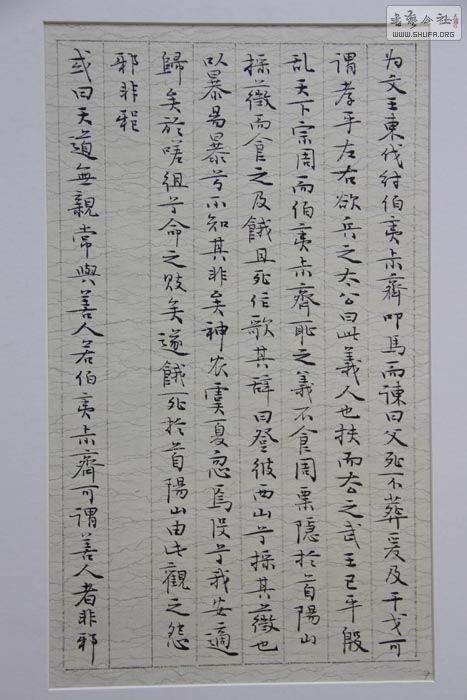 書藝公社
WWW.SHUFA.ORG
为文王東伐紂伯夷叔齊叩馬而諫曰父死不葬爰及干戈可
謂孝乎左右欲兵之太公曰此義人也扶而去之武王已平殷
乱天下宗周而伯夷叔齊恥之義不食周粟隱於首陽山
採薇而食之及餓且死作歌其辞曰登彼西山兮採其薇也
以暴易暴兮不知其非矣神农虞夏忽焉没兮我安適
歸矣於嗟組兮命之矣遂餓死於首陽山由此觀之怨
邪非邪
或曰天道無親常與善人若伯夷叔齊可謂善人者非邪